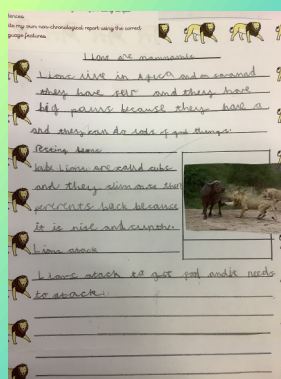 tences.
ite my own non-chronological report using the correct
guage features
Lions are mammals
Lions live in Africa and on savannad
they have feir and they have
big paws because they have a
and they can do lods of good things.
Resting
babe Lions are calld cubs
and they clim ove ther
perents back because
it is nise and
Lions atack
Lions atack to get food and needs
to atack.